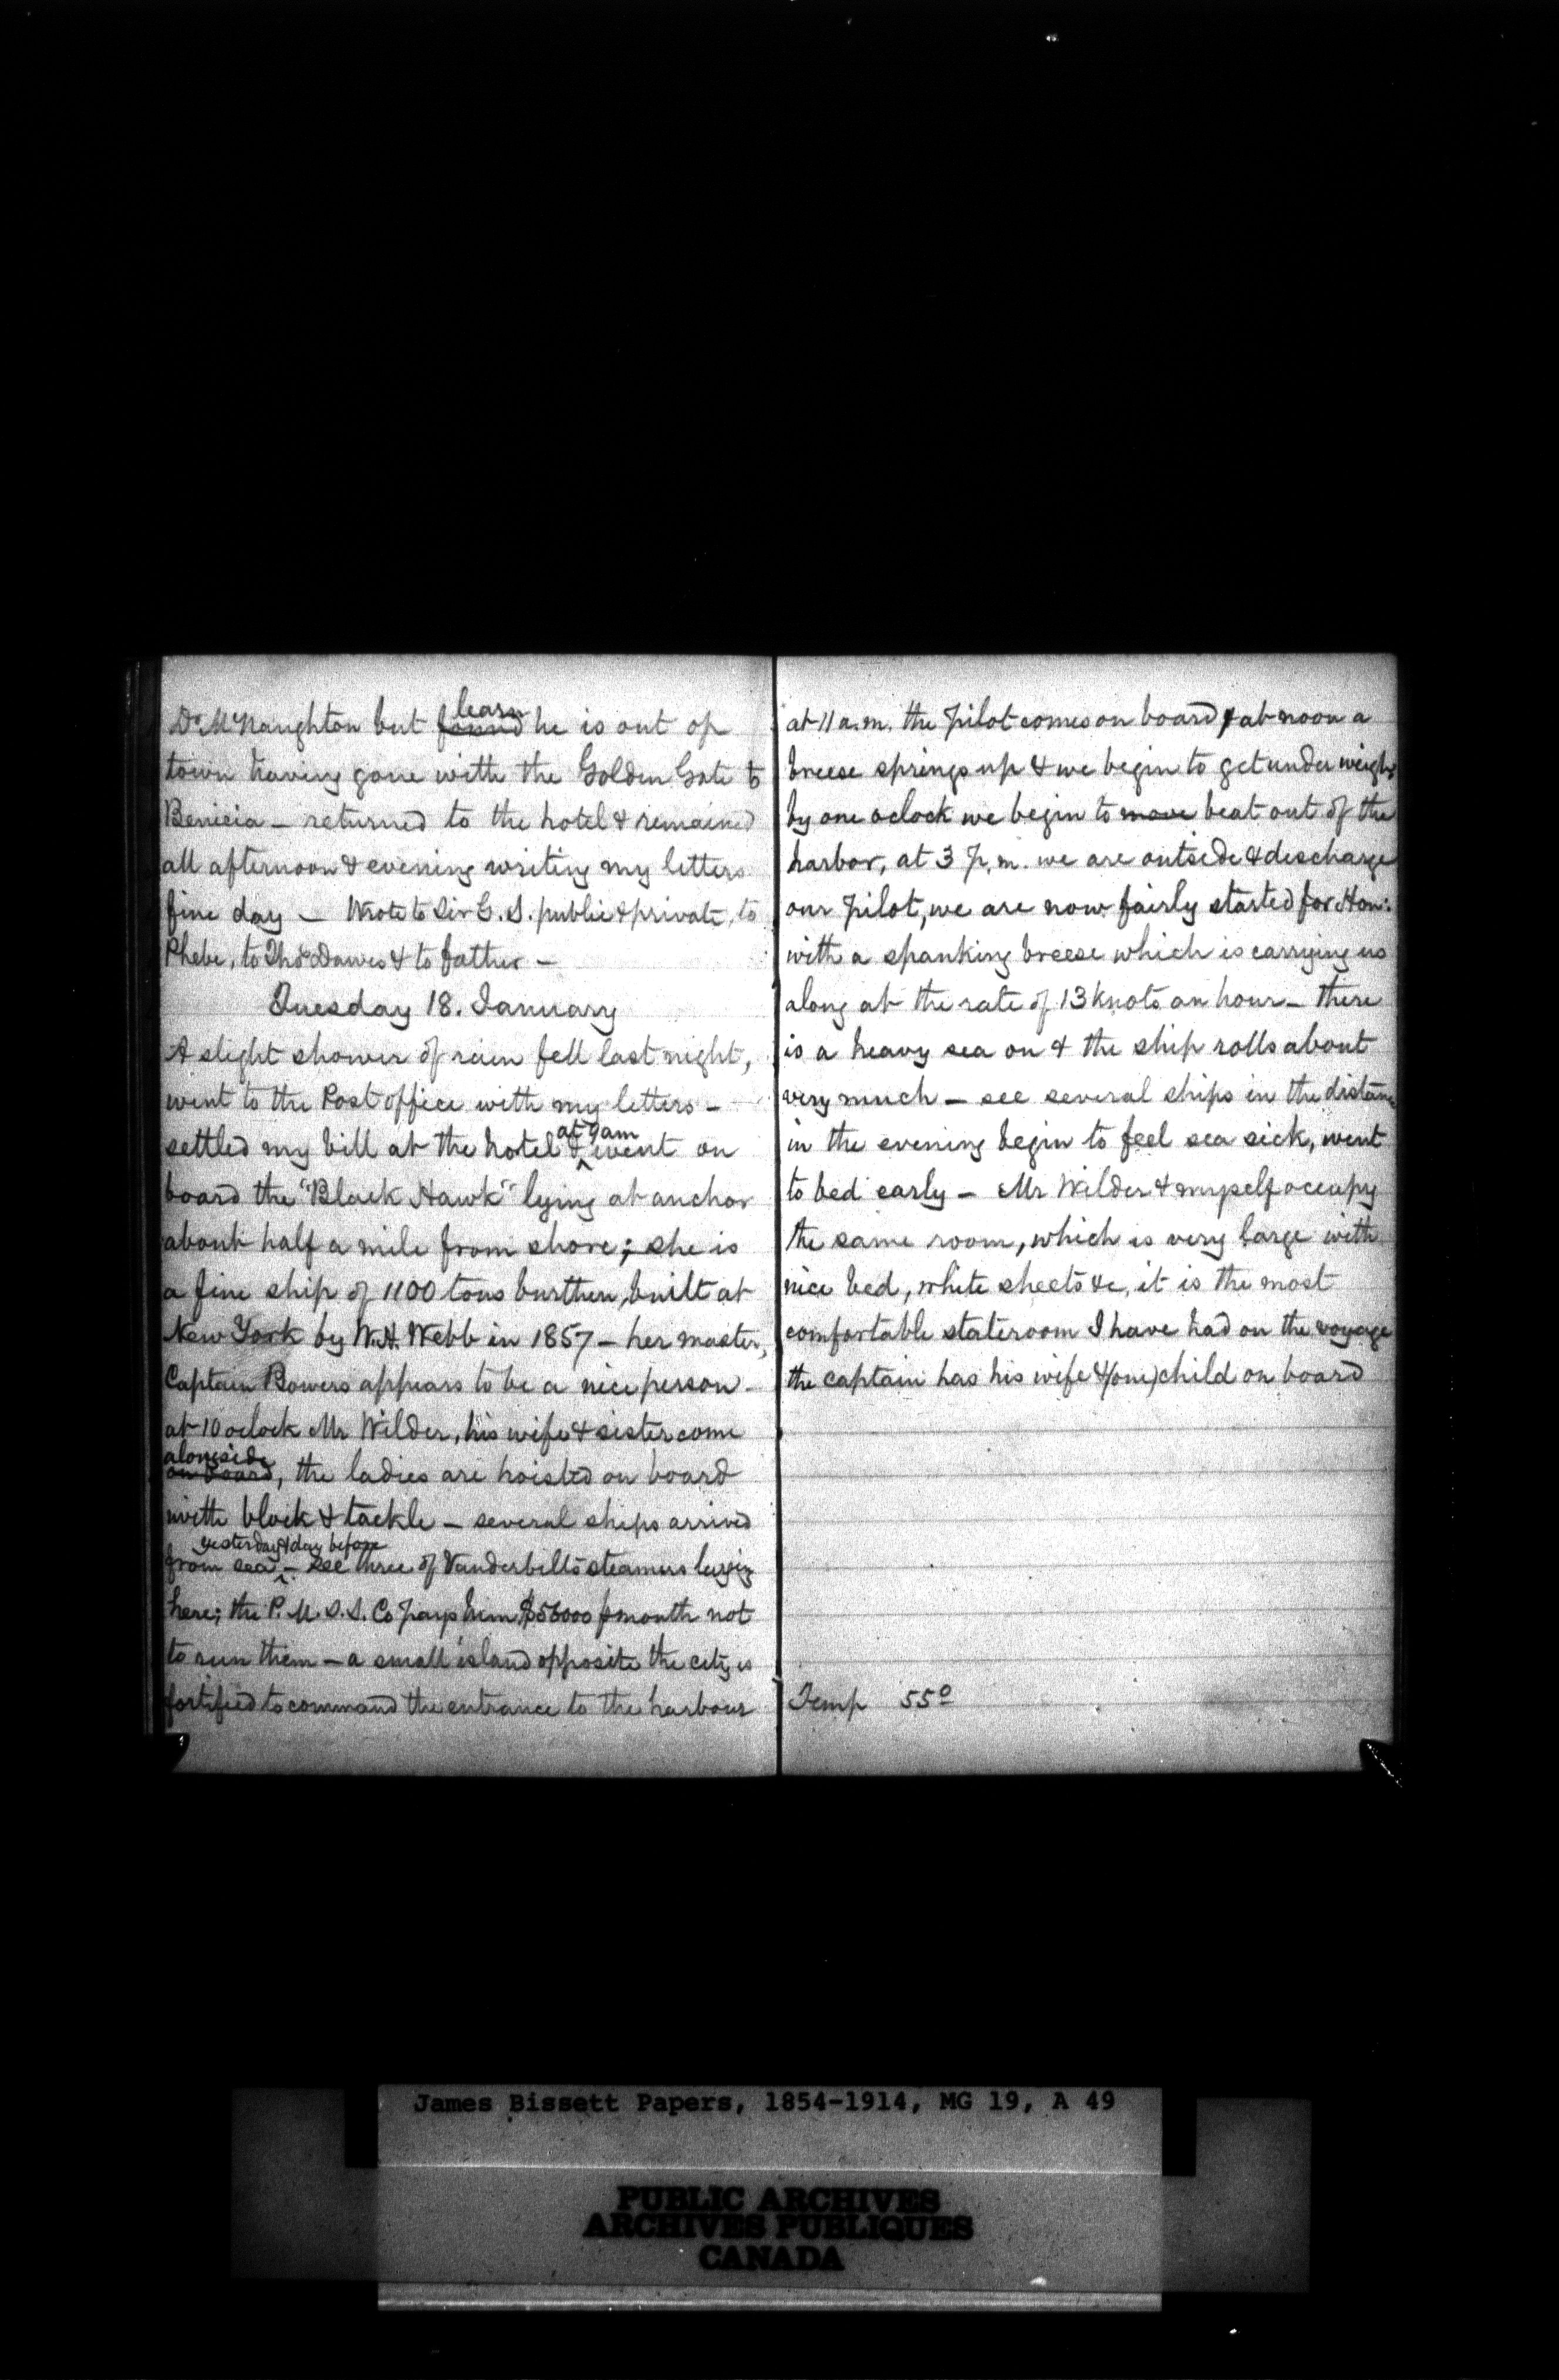 Dr McNaughton but found learn he is out of
town having gone with the Golden Gate to
Benicia – returned to the hotel & remained
all afternoon & evening writing my letters
fine day – Wrote to Sir G. S. public & private, to
Phebe, to Thos Dawes & to father –
Tuesday 18. January
A slight shower of rain fell last night,
went to the Post office with my letters –
at 9 am
settled my bill at the hotel & went on
board the "Black Hawk" lying at anchor
about half a mile from shore; she is
a fine ship of 1100 tons burthen, built at
New York by W.H. Webb in 1857 – her master,
Captain Bowers appears to be a nice person –
at 10 oclock Mr Wilder, his wife & sister come
alongside
on board, the ladies are hoisted on board
with block & tackle – several ships arrived
yesterday & day before
from sea – see three of Vanderbilts steamers laying
here; the P. M. S. S. Co pays him $56000 p month not
to run them – a small island opposite the city is
fortified to command the entrance to the harbour
at 11 a.m. the pilot comes on board & at noon a
breese springs up & we begin to get under weigh
by one oclock we begin to move beat out of the
harbor, at 3 p.m. we are outside & discharge
our pilot, we are now fairly started for Hon:
with a spanking breese which is carrying us
along at the rate of 13 knots an hour – there
is a heavy sea on & the ship rolls about
very much – see several ships in the distance
in the evening begin to feel sea sick, went
to bed early – Mr Wilder & myself occupy
the same room, which is very large with
nice bed, white sheets &c, it is the most
comfortable stateroom I have had on the voyage
the captain has his wife & (one) child on board
Temp 55º
James Bissett Papers, 1854-1914, MG 19, A 49
PUBLIC ARCHIVES
ARCHIVES PUBLIQUES
CANADA